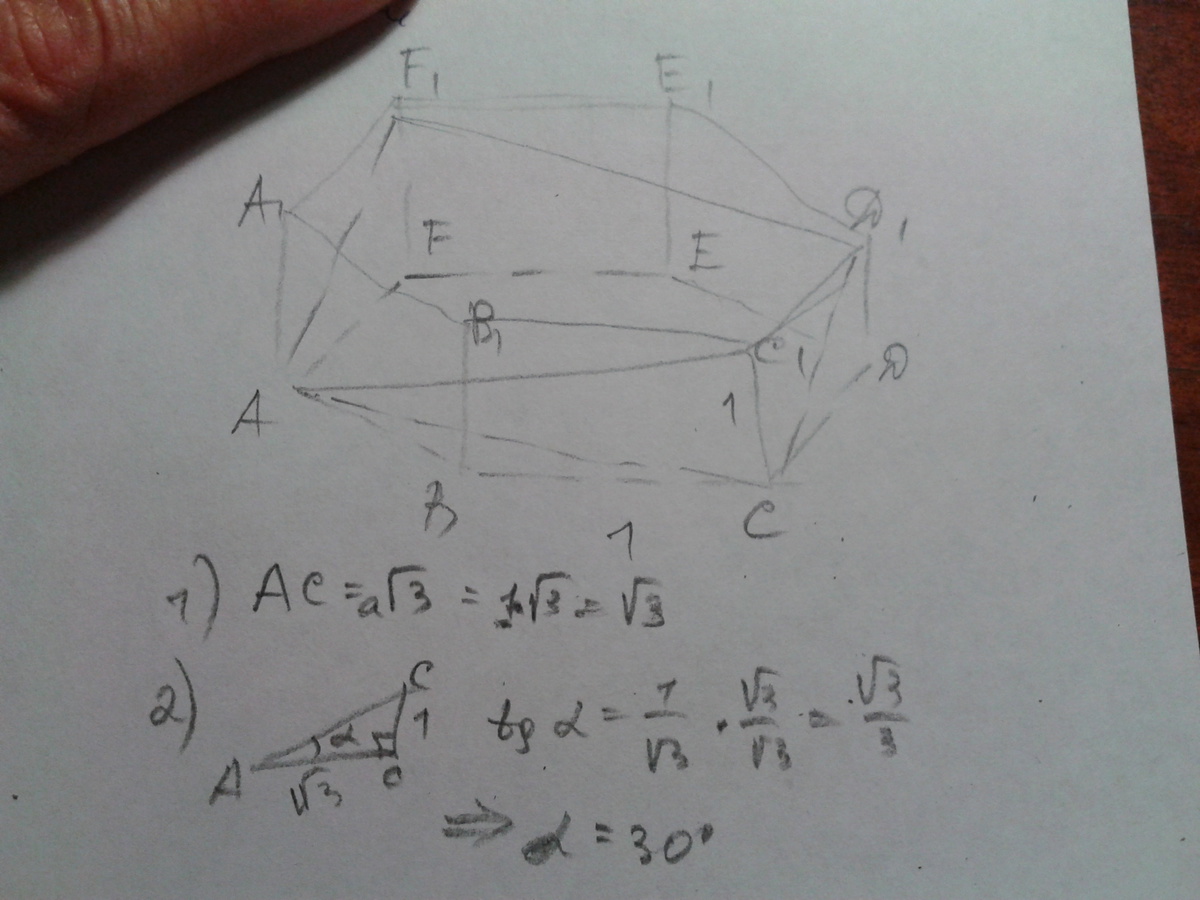 F₁ E₁
A₁ D₁
F E
B₁ C₁
1 D
A
B C
1
1) AC = a√3 = 1·√3 = √3
2) A √3 C 1 C α tg α = 1/√3 · √3/√3 = √3/3
⇒ α = 30°